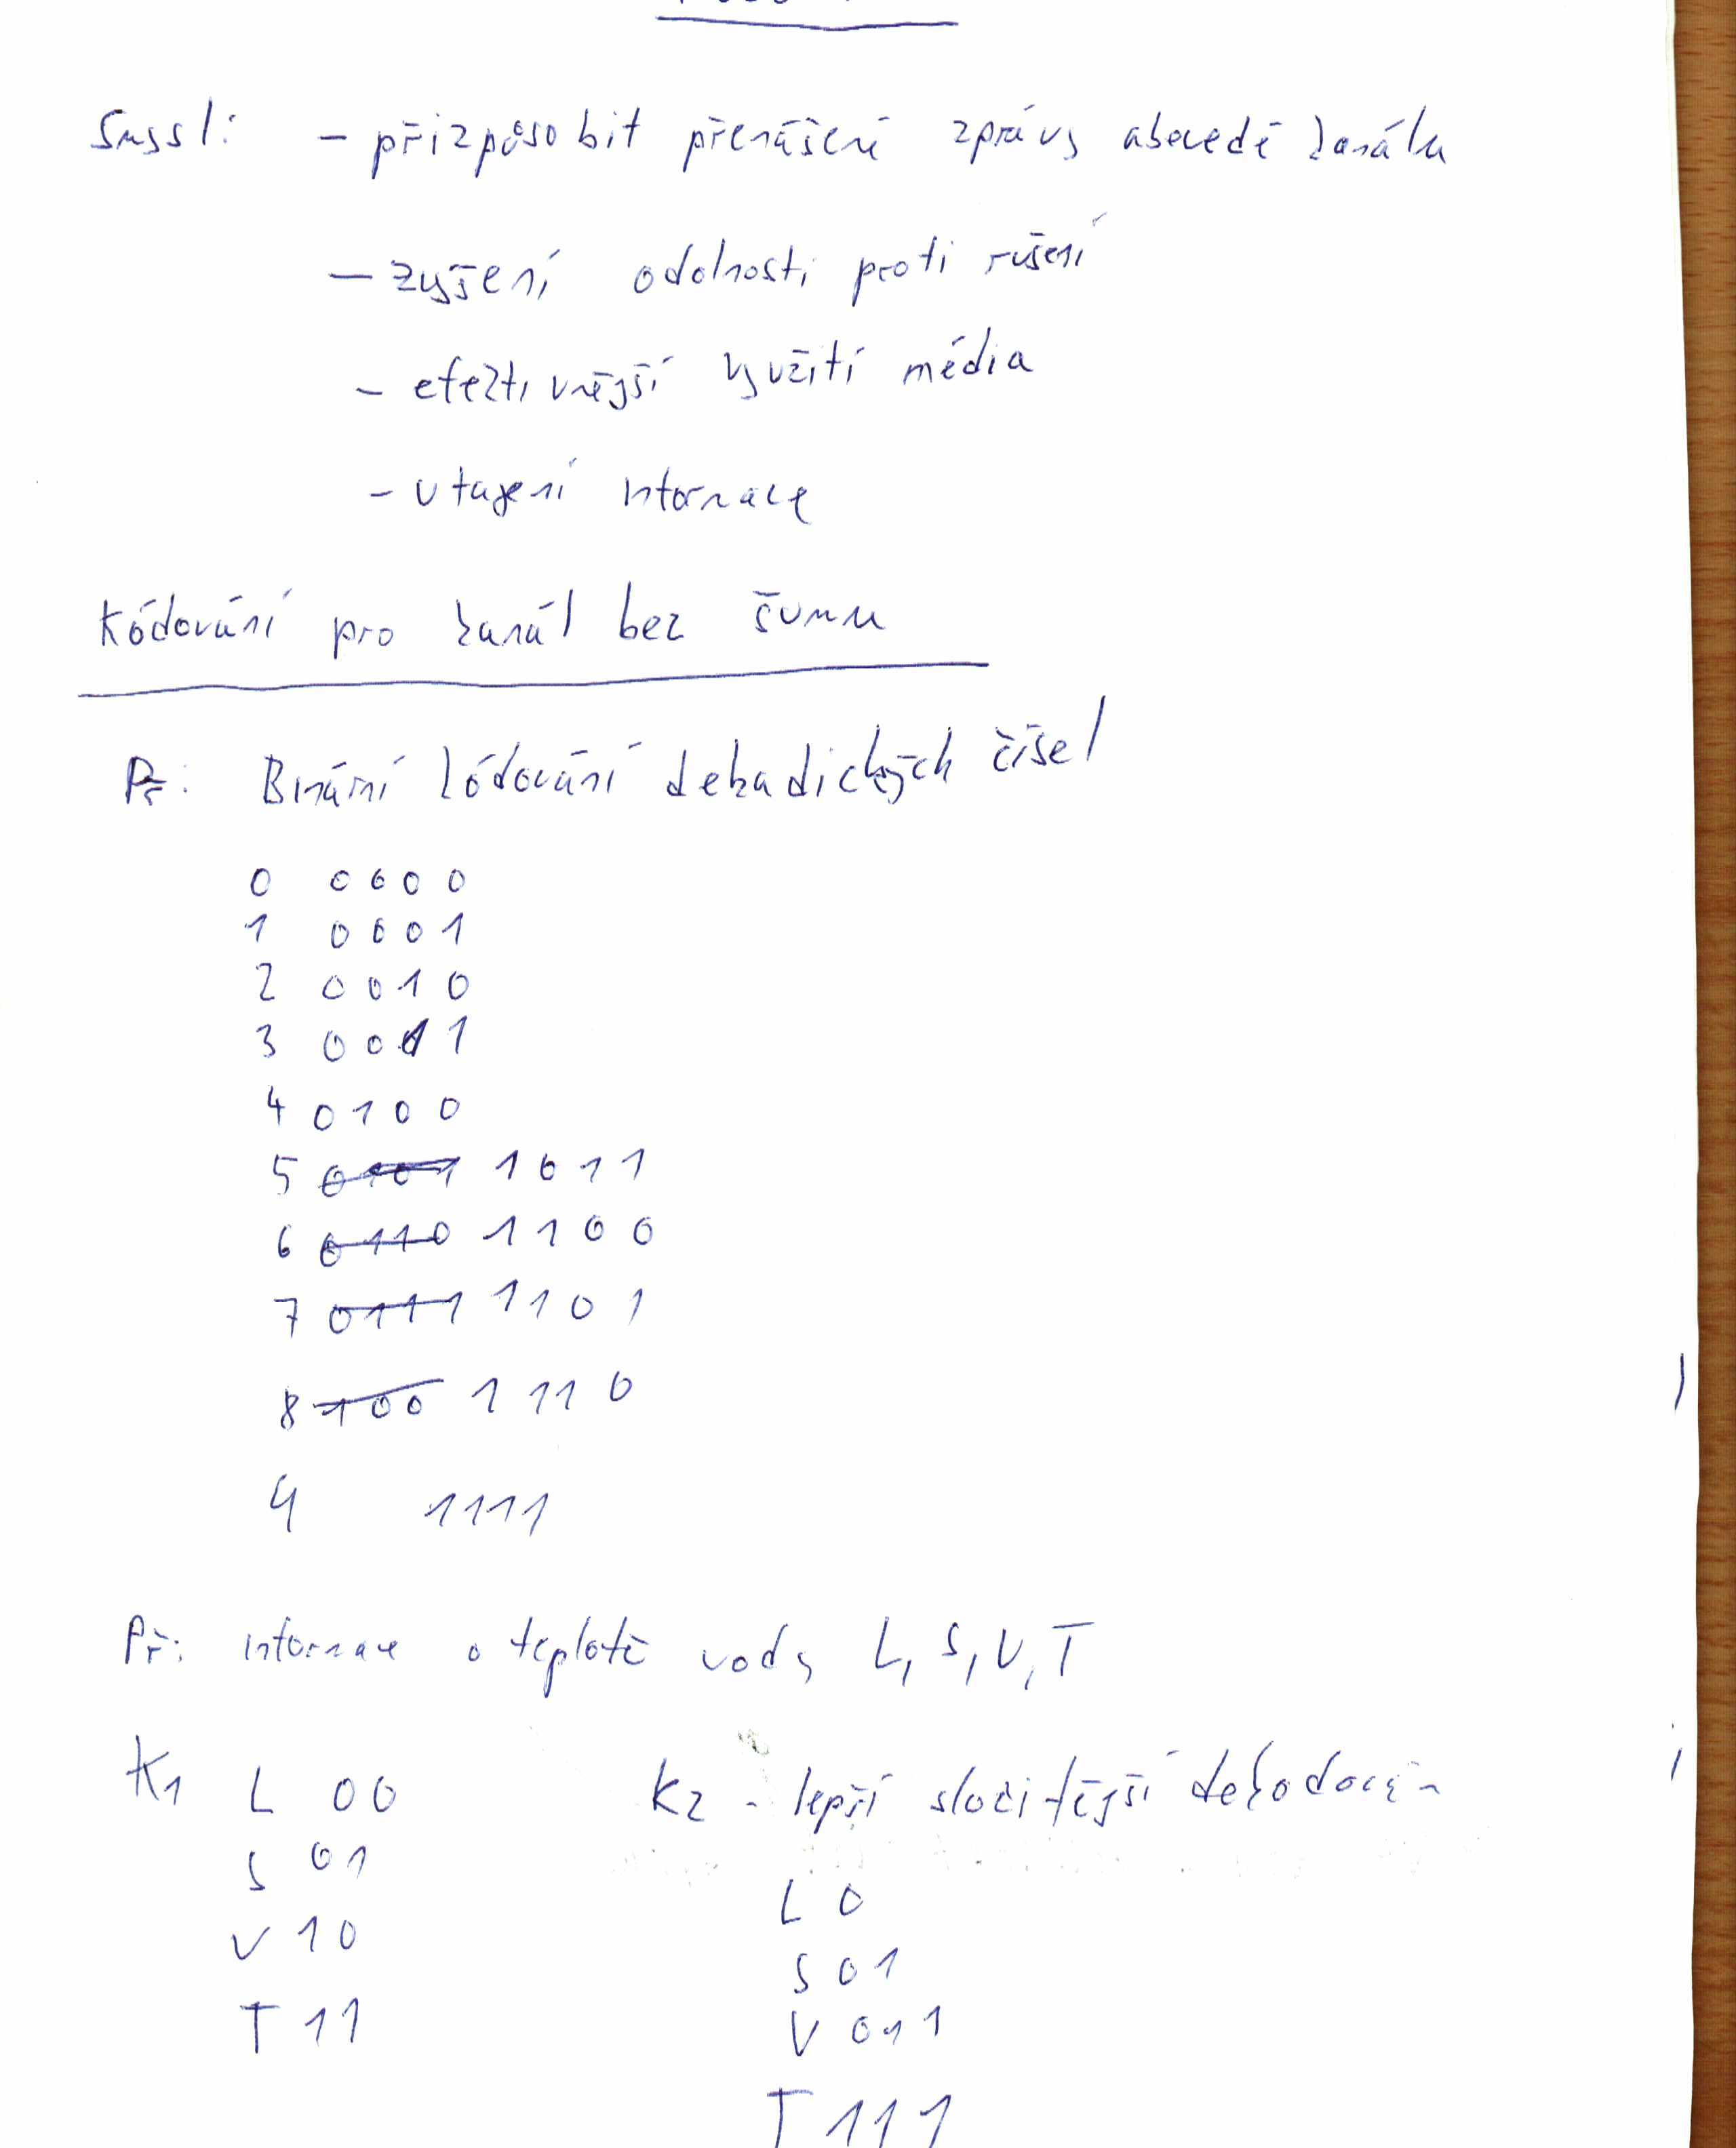 Smysl: - přizpůsobit přenášené zprávy abecedě kanálu
- zyšení odolnosti proti rušení
- efektivnější využití média
- utajení informace
Kódování pro kanál bez šumu
Př: Binární kódování dekadických čísel
0 0000
1 0001
2 0010
3 0011
4 0100
5 0101 1011
6 0110 1100
7 0111 1101
8 100 1110
9 1111
Př: informace o teplotě vody L, S, V, T
K1 L 00 K2 - lepší složitější dekodování
S 01
L 0
V 10
S 01
T 11
V 011
T 111